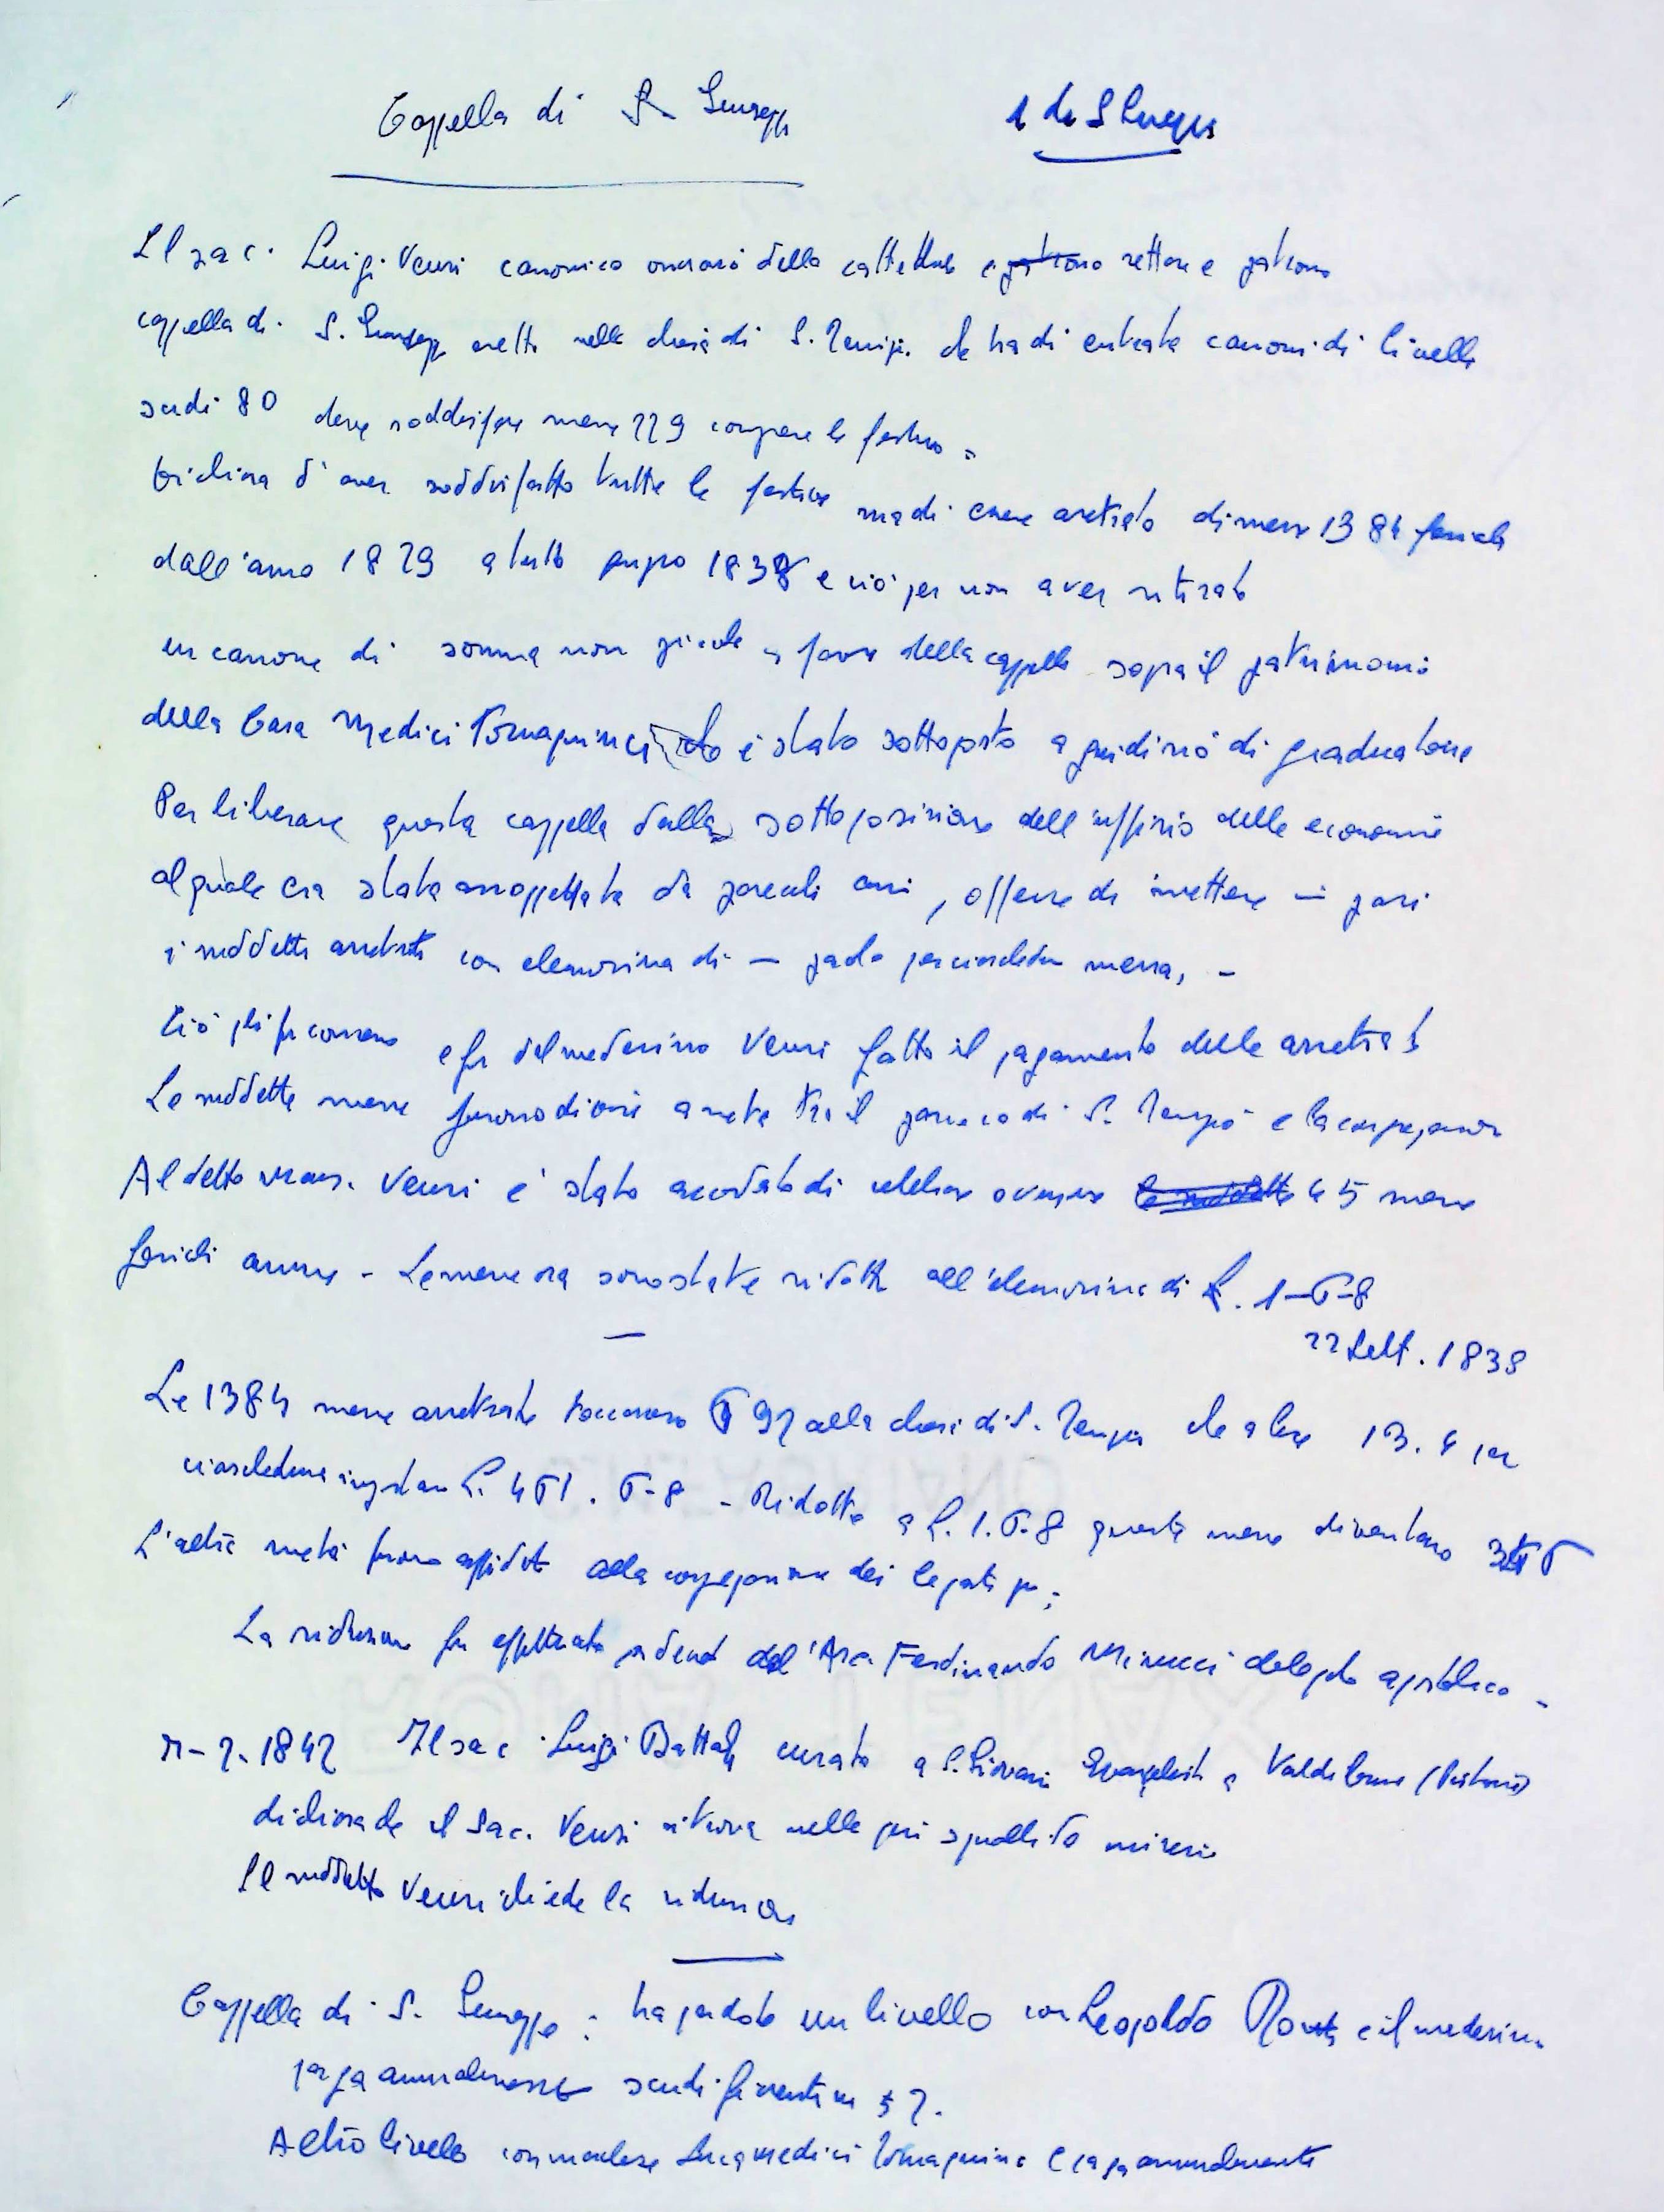 Cappella di S. Giuseppe
1 di S Giuseppe
Il sac. Luigi Venri canonico onorario della cattedrale e patrono rettore e patrono
cappella di S. Giuseppe eretta nella chiesa di S. Remigio che ha di entrate canoni di livelli
scudi 80 deve soddisfare messe 229 comprese le festive.
dichiara d'aver soddisfatto tutte le festive ma di essere arretrato di messe 1384 feriali
dall'anno 1829 a tutto giugno 1838 e ciò per non aver ritirato
un canone di somma non piccola a favore della cappella sopra il patrimonio
della Casa Medici Tornaquinci è stato sottoposto a giudizio di graduatoria
Per liberare questa cappella dalla sottoposizione dell'uffizio delle economie
al quale era stata assoggettata da parecchi anni, offerse di mettere in pari
i suddetti arretrati con elemosina di — paolo per ciascheduna messa, -
Ciò gli fu concesso e fu dal medesimo Venri fatto il pagamento delle arretrate
Le suddette messe furono divise a metà tra il parroco di S. Remigio e la congregazione
Al detto Venri è stato accordato di celebrare ovunque le suddette 45 messe
feriali annue - Le messe ora sono state ridotte all'elemosina di £. 1-6-8
22 Sett. 1838
Le 1384 messe arretrate toccarono 692 alla chiesa di S. Remigio che a lire 13.4 per
ciascheduna importano £. 461.6-8 - Ridotte a £. 1.6.8 queste messe diventano
L'altra metà furono affidate alla congregazione dei legati pii;
La riduzione fu effettuata dall'Arc. Ferdinando Minucci delegato apostolico -
2-1842 Il sac. Luigi curato a S. Giovanni Evangelista a Valdibrana (Pistoia)
dichiara che il Sac. Venri si trova nella più squallida miseria
Il suddetto Venri chiede la riduzione
Cappella di S. Giuseppe: ha perduto un livello con Leopoldo e il medesimo
paga annualmente scudi fiorentini 52.
Altro livello con marchese Luca Medici Tornaquinci e paga annualmente